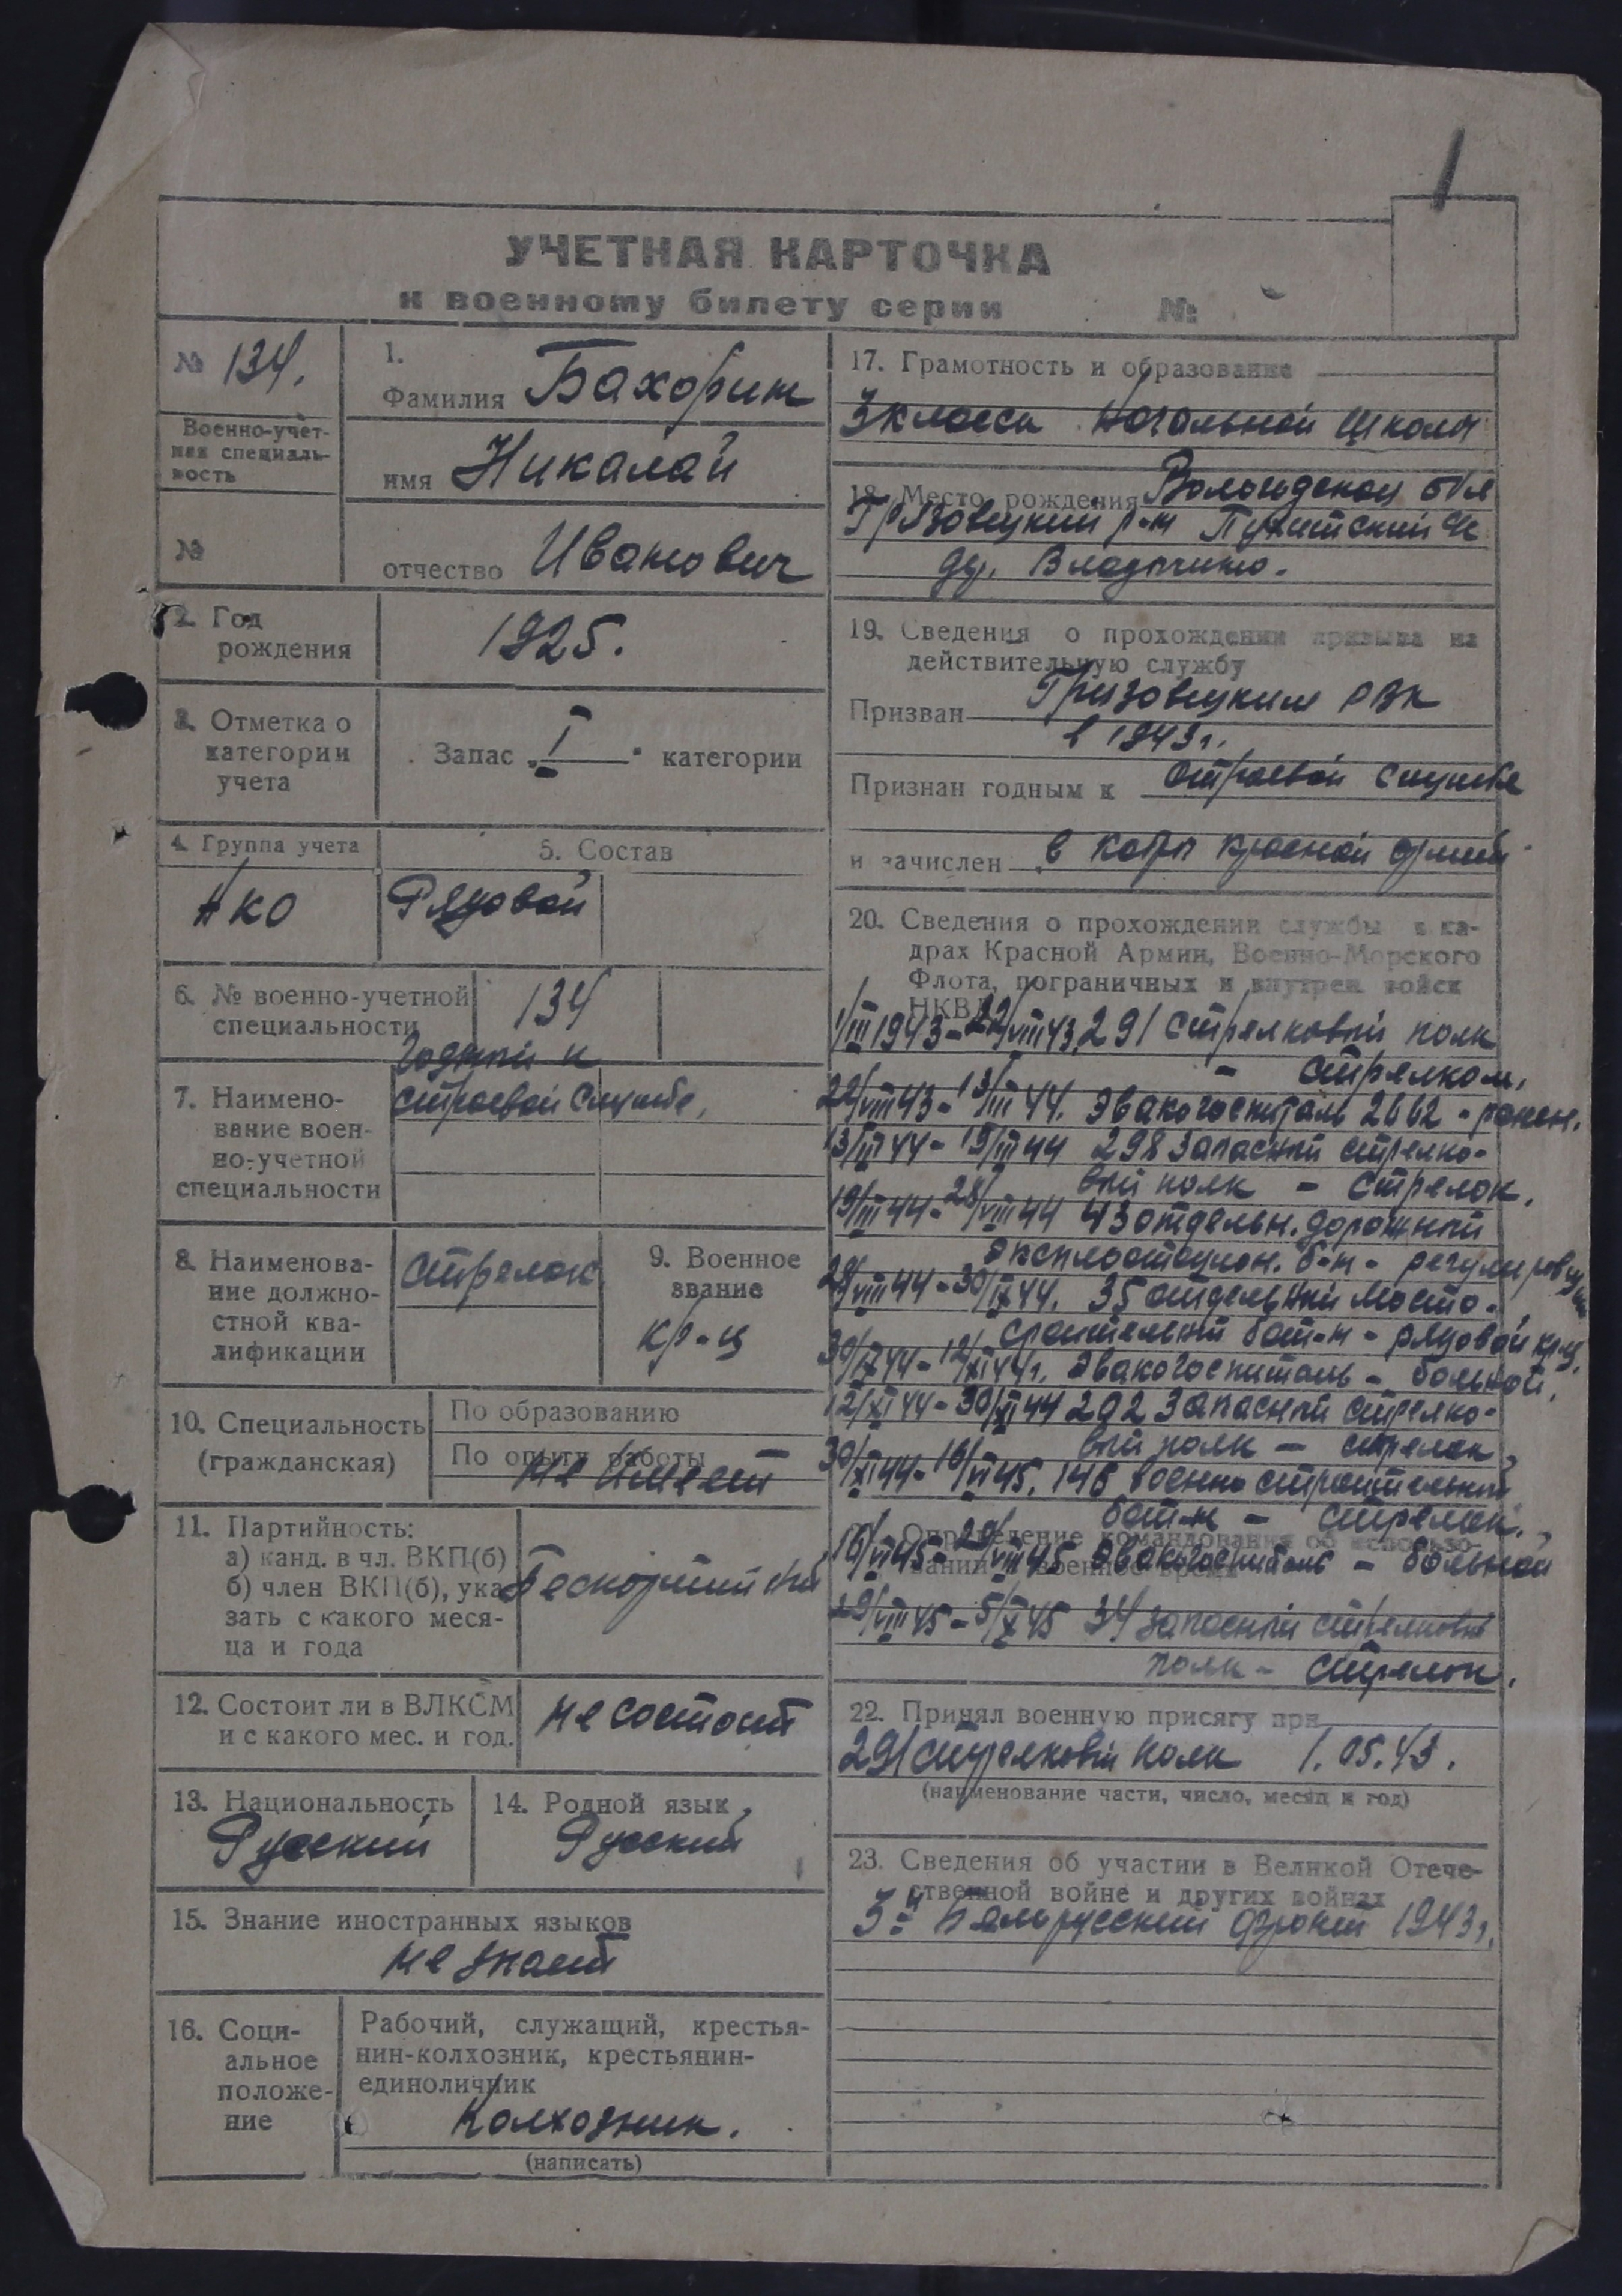 1
УЧЕТНАЯ КАРТОЧКА
к военному билету серии №
№ 134.
Военно-учет-
ная специаль-
ность
№
1.
Фамилия Бахорин
имя Никалай
отчество Иванович
2. Год
рождения
1925.
3. Отметка о
категории
учета
Запас „I“ категории
4. Группа учета
АКО
5. Состав
Рядовой
6. № военно-учетной
специальности
134
7. Наимено-
вание воен-
но-учетной
специальности
Годный к
строевой службе,
8. Наименова-
ние должно-
стной ква-
лификации
стрелок
9. Военное
звание
кр-ц
10. Специальность
(гражданская)
По образованию
По опыту работы
не имеет
11. Партийность:
а) канд. в чл. ВКП(б)
б) член ВКП(б), ука-
зать с какого меся-
ца и года
12. Состоит ли в ВЛКСМ
и с какого мес. и год.
не состоит
13. Национальность
Русский
14. Родной язык
Русский
15. Знание иностранных языков
не знает
16. Соци-
альное
положе-
ние
Рабочий, служащий, крестья-
нин-колхозник, крестьянин-
единоличник
Колхозник.
(написать)
17. Грамотность и образование
3 класса Начальной школы
18. Место рождения Вологодской обл
Грязовецкий р-н
др.
19. Сведения о прохождении призыва на
действительную службу
Призван Грязовецким РВК
в 1943 г.
Признан годным к строевой службе
и зачислен в кадры красной армии
20. Сведения о прохождении службы в ка-
драх Красной Армии, Военно-Морского
Флота, пограничных и внутрен. войск
НКВД
1/III 1943 - 22/VIII 43, 291 стрелковый полк
- стрелком,
22/VIII 43 - 13/III 44. Эвакогоспиталь 2662 - ранен.
13/III 44 - 19/III 44 298 Запасный стрелко-
вый полк - стрелок,
19/III 44 - 28/VIII 44 43 отдельн. дорожный
эксплоатацион. б-н - регулировщик
28/VIII 44 - 30/IX 44. 35 отдельный мосто-
строительный бат-н - рядовой кр-ц,
30/IX 44 - 12/XI 44 г. Эвакогоспиталь - больной,
12/XI 44 - 30/XI 44 202 Запасный стрелко-
вый полк - стрелок,
30/XI 44 - 16/VI 45. 146 военно строительный
бат-н - стрелок,
Определение командования об использо-
вании в военное время
16/VI 45 - 29/VIII 45 Эвакогоспиталь - больной
29/VIII 45 - 5/X 45 34 запасный стрелковый
полк - стрелок.
22. Принял военную присягу при
291 стрелковый полк 1.05.43.
(наименование части, число, месяц и год)
23. Сведения об участии в Великой Отече-
ственной войне и других войнах
3-й Белорусский фронт 1943 г.